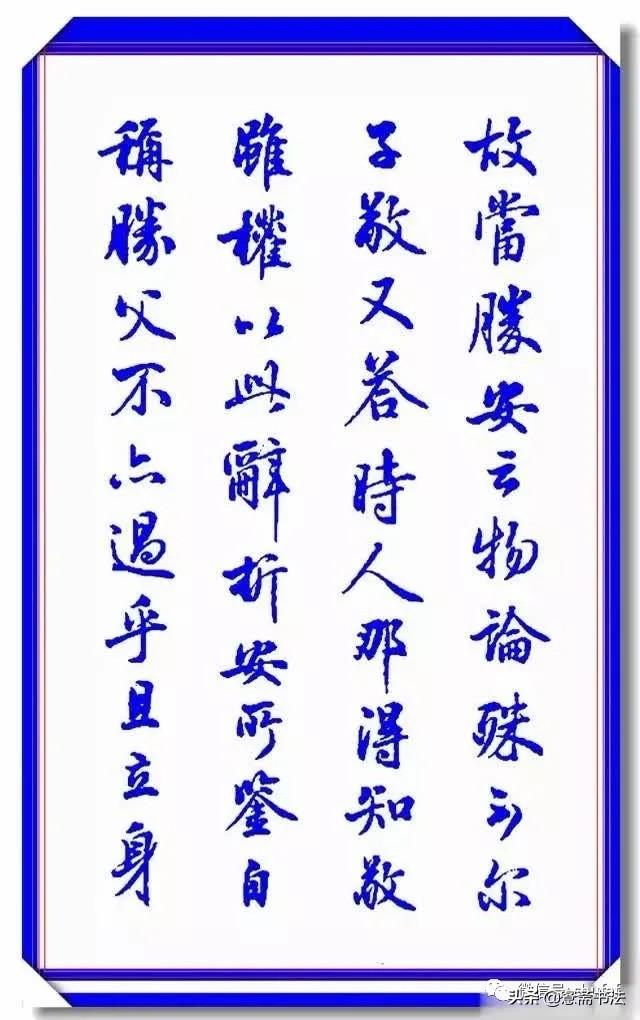 故當勝安云物論殊不尔
子敬又荅時人那得知敬
雖權以此辭折安所鑒自
稱勝父不亦過乎且立身
微信号
头条 @斋书法